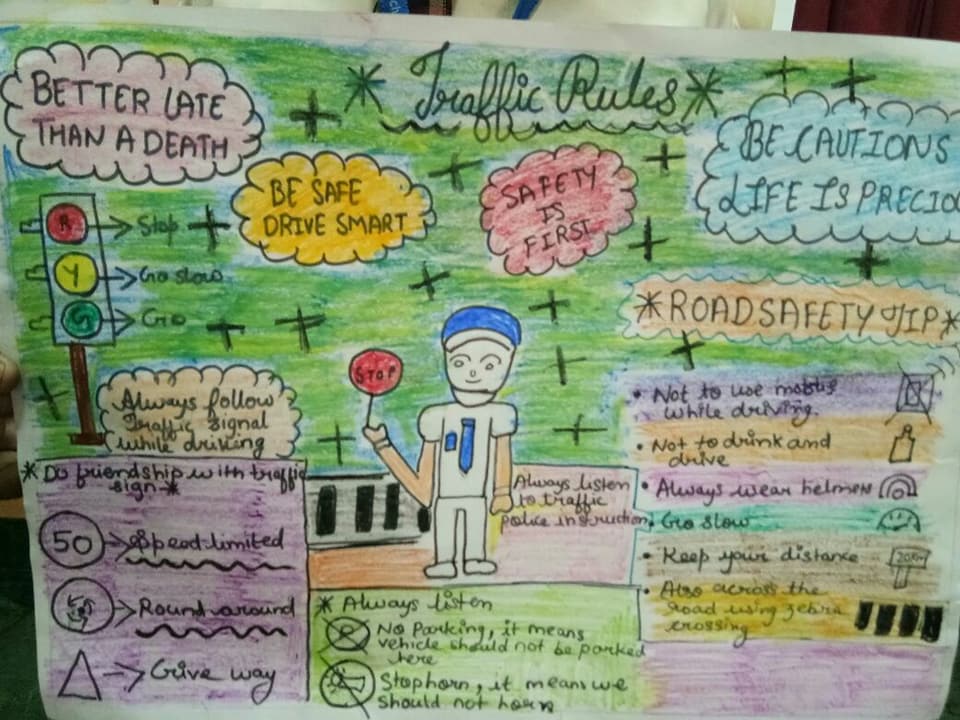 Traffic Rules
BETTER LATE
THAN A DEATH
BE SAFE
DRIVE SMART
SAFETY
IS
FIRST
BE CAUTIONS
LIFE IS PRECIO
R
Stop
Y
Go slow
G
Go
STOP
ROAD SAFETY TIP
Always follow
Traffic signal
while driving
• Not to use mobile
while driving.
• Not to drink and
drive
• Always wear helmet
• Go slow
• Keep your distance
• Also across the
road using zebra
crossing
Do friendship with traffic
sign
50 Speed limited
Round around
Give way
Always listen
to traffic
police instruction
Always listen
P
No Parking, it means
vehicle should not be parked
here
Stop horn, it means we
should not horn